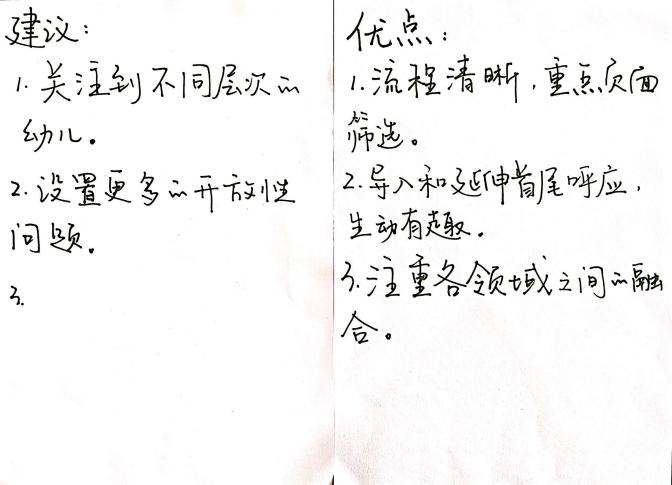 建议：
1. 关注到不同层次的
幼儿。
2. 设置更多的开放性
问题。
3.
优点：
1. 流程清晰，重点页面
筛选。
2. 导入和延伸首尾呼应，
生动有趣。
3. 注重各领域之间的融
合。